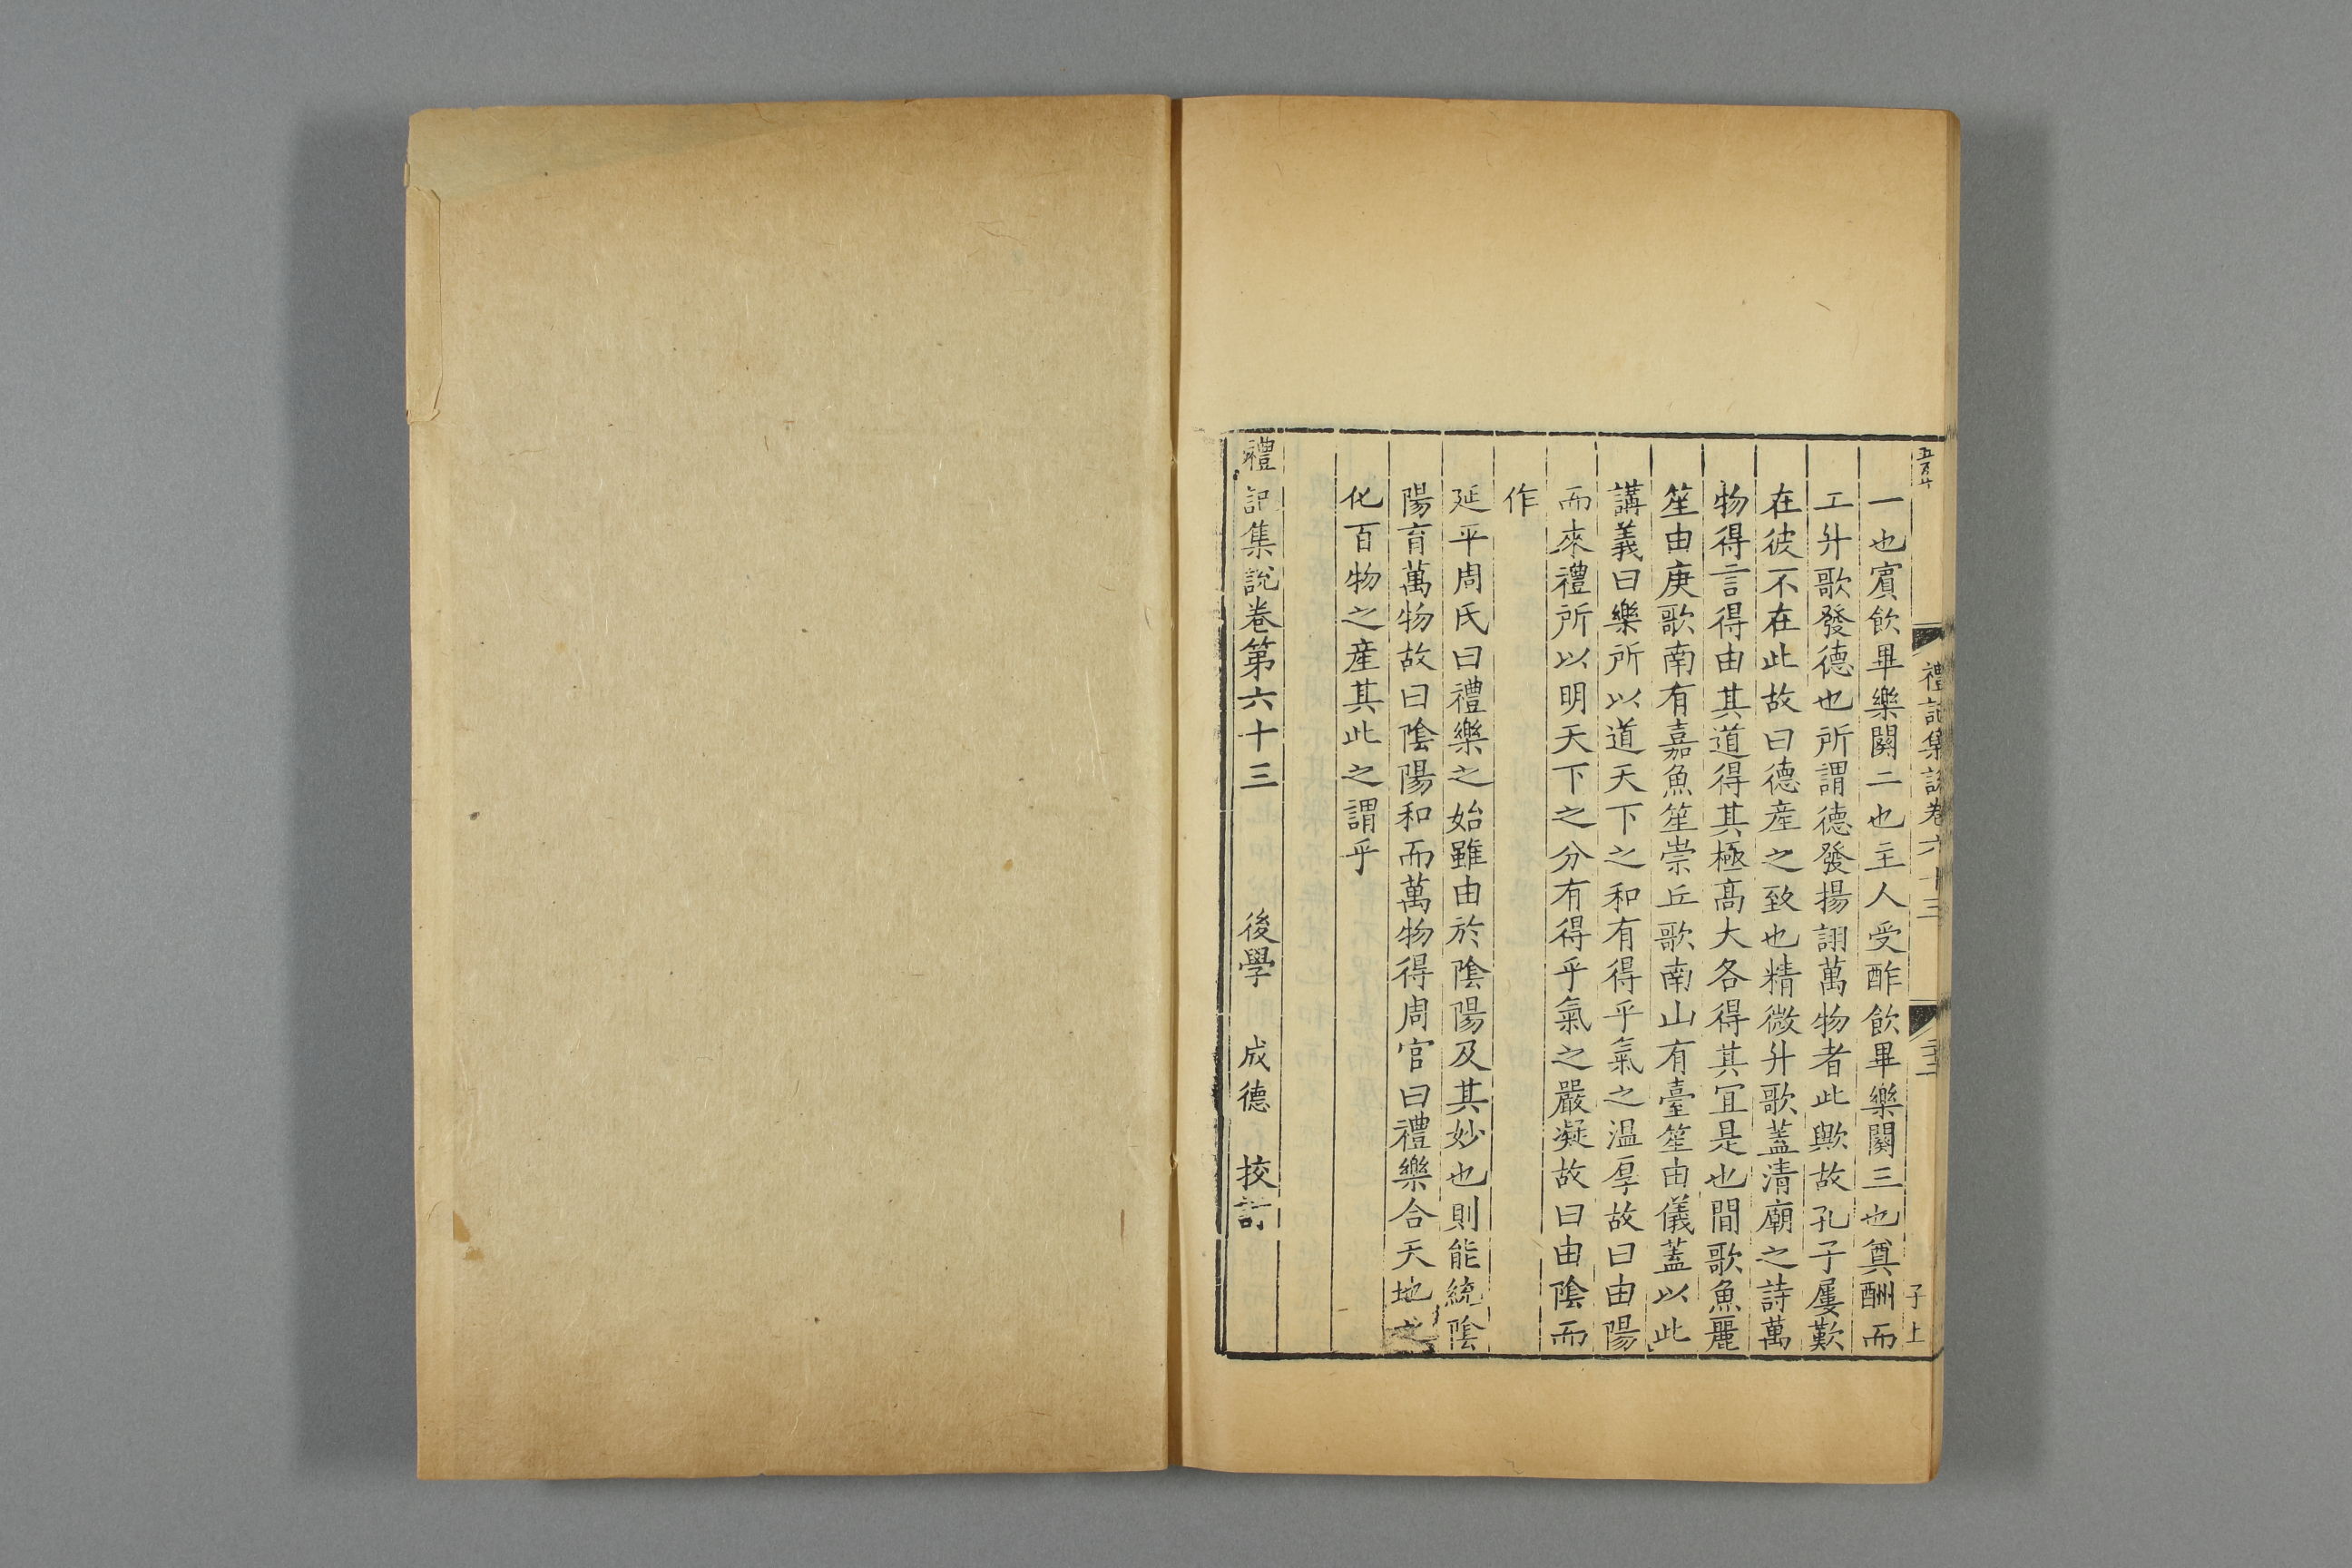 禮記集說卷六十三
子上
一也賓飲畢樂闋二也主人受酢飲畢樂闋三也奠酬而
工升歌發德也所謂德發揚詡萬物者此歟故孔子屢歎
在彼不在此故曰德産之致也精微升歌蓋清廟之詩萬
物得言得由其道得其極高大各得其冝是也間歌魚麗
笙由庚歌南有嘉魚笙崇丘歌南山有臺笙由儀蓋以此
講義曰樂所以道天下之和有得乎氣之温厚故曰由陽
而來禮所以明天下之分有得乎氣之嚴凝故曰由陰而
作
延平周氏曰禮樂之始雖由於陰陽及其妙也則能統陰
陽育萬物故曰陰陽和而萬物得周官曰禮樂合天地之
化百物之産其此之謂乎
禮記集說卷第六十三 後學 成德 挍訂